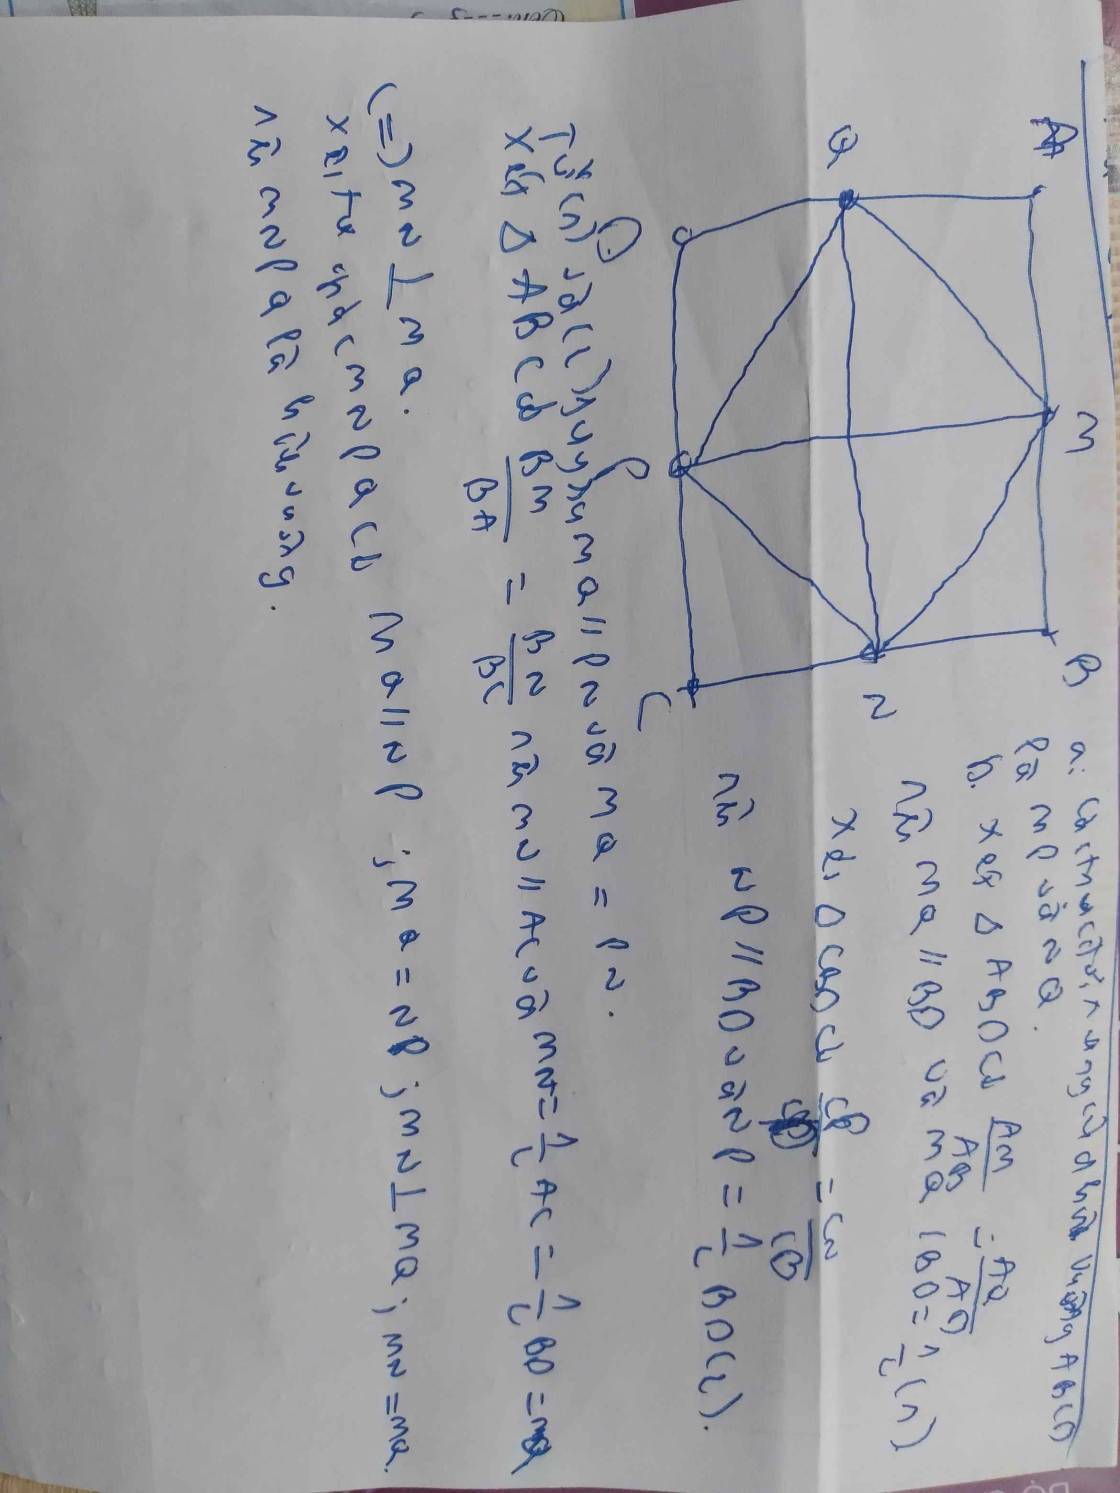 A
M
B
Q
N
D
P
C
a. các trục đối xứng của hình vuông ABCD
là MP và NQ.
b. xét Δ ABD có AM/AB = AQ/AD
nên MQ // BD và MQ (BD = 1/2 (1)
xét Δ CBD có CP/CD = CN/CB
nên NP // BD và NP = 1/2 BD (2).
Từ (1) và (2) suy ra MQ // PN và MQ = PN.
xét Δ ABC có BM/BA = BN/BC nên MN // AC và MN = 1/2 AC = 1/2 BD = MQ
(=) MN ⊥ MQ.
xét tứ giác MNPQ có MQ // NP ; MQ = NP ; MN ⊥ MQ ; MN = MQ.
nên MNPQ là hình vuông.